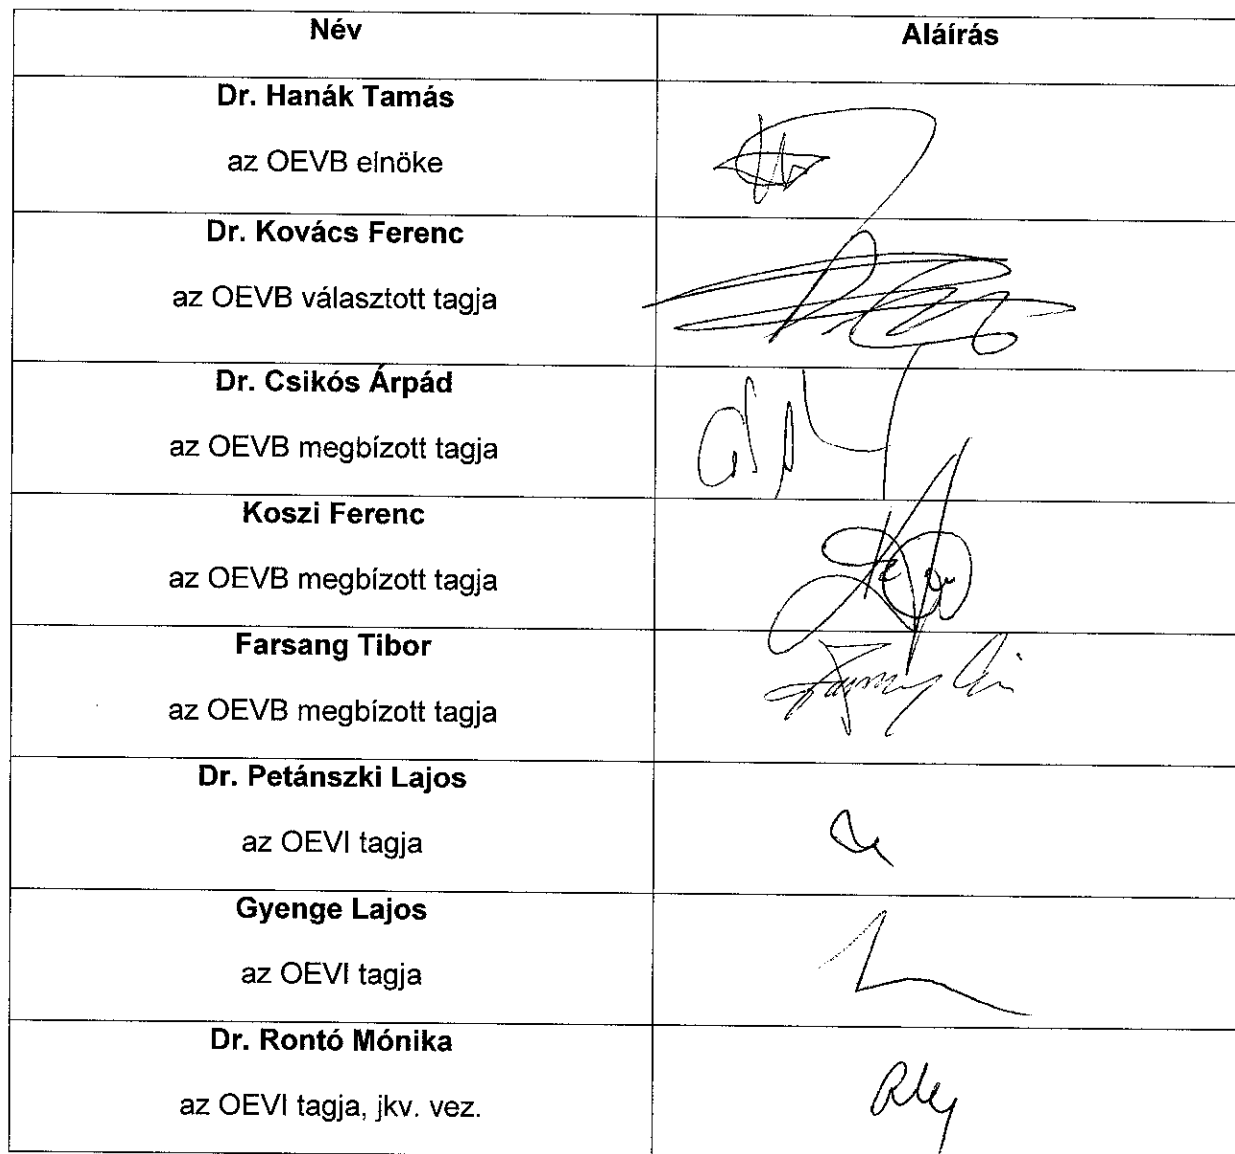 Név Aláírás
Dr. Hanák Tamás
az OEVB elnöke
Dr. Kovács Ferenc
az OEVB választott tagja
Dr. Csikós Árpád
az OEVB megbízott tagja
Koszi Ferenc
az OEVB megbízott tagja
Farsang Tibor
az OEVB megbízott tagja
Dr. Petánszki Lajos
az OEVI tagja
Gyenge Lajos
az OEVI tagja
Dr. Rontó Mónika
az OEVI tagja, jkv. vez.